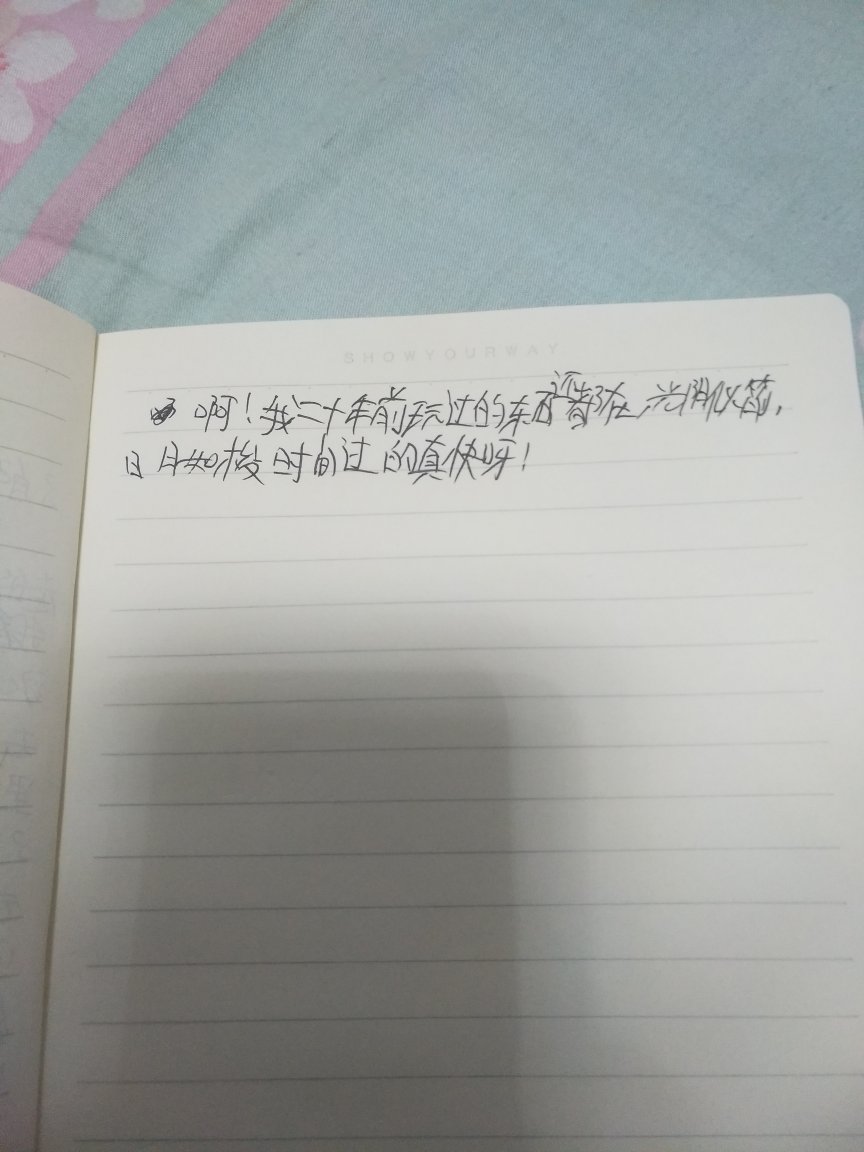 SHOWYOURWAY
啊!我二十年前玩过的东西还都在,光阴似箭,
日月如梭时间过的真快呀!